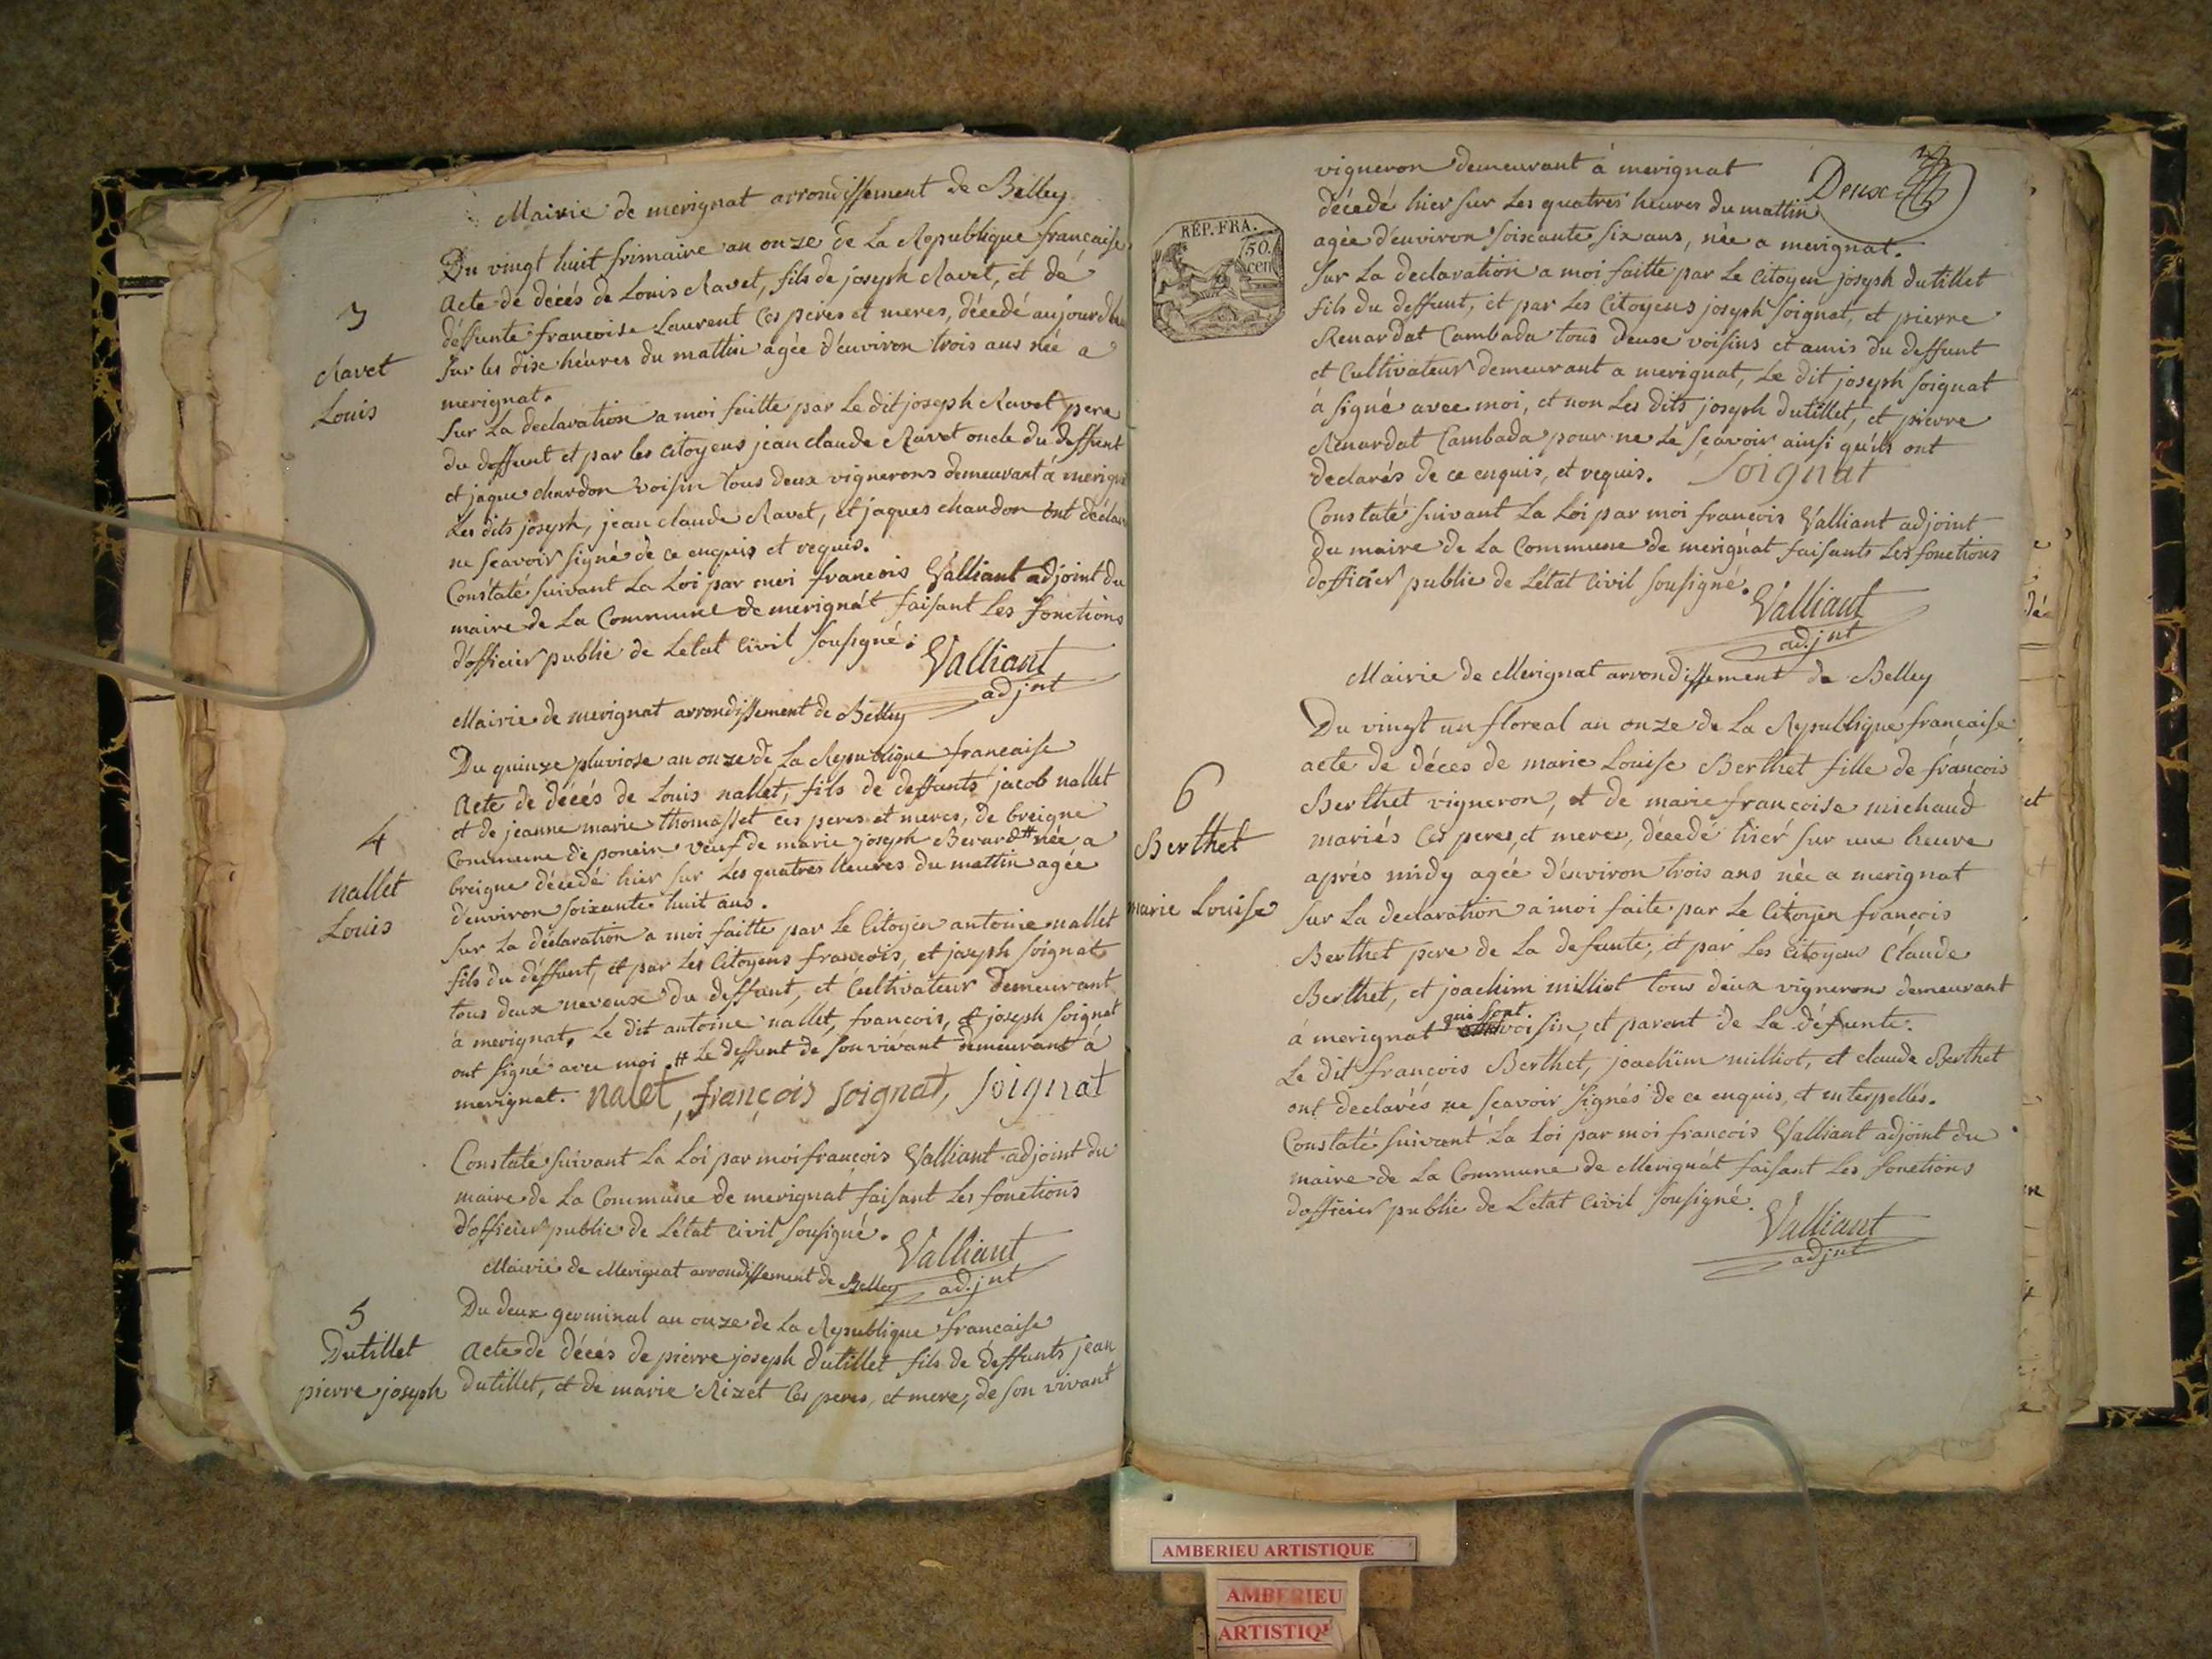 Mairie de merignat arrondissement de Belley
Du vingt huit frimaire an onze de La Republique francaise
3
Ravet
Louis
Acte de décés de Louis Ravet, fils de joseph Ravet, et de
deffunte francoise Laurent Ces peres et meres, décedé aujourdhu
sur les dix heures du mattin agée d'environ trois ans née a
merignat.
sur La declaration a moi faitte par Le dit joseph Ravet pere
du deffunt et par les citoyens jean claude Ravet oncle du deffunt
et jaque chardon voisin tous deux vignerons demeurant à merigna
Les dits joseph, jean claude Ravet, et jaques chardon ont déclar
ne scavoir signé de ce enquis et requis.
Constaté suivant La Loi par moi francois Valliant adjoint du
maire de La Commune de merignat faisant Les fonctions
d'officier public de Letat Civil sousigné.
Valliant
adjnt
Mairie de merignat arrondissement de Belley
Du quinze pluviose an onze de La Republique francaise
4
nallet
Louis
Acte de décés de Louis nallet, fils de deffunts jacob nallet
et de jeanne marie thomasset ces peres et meres, de breigne
Commune de poncin veuf de marie joseph Berard # née a
breigne décedé hier sur Les quatres heures du mattin agée
d'environ soixante huit ans.
sur La déclaration a moi faitte par Le Citoyen antoine nallet
fils du deffunt, et par Les Citoyens francois, et joseph soignat
tous deux neveux du deffunt, et Cultivateur demeurant
à merignat, Le dit antoine nallet, francois, et joseph soignat
ont signé avec moi # Le deffunt de son vivant demeurant à
merignat. nalet, françois soignat, soignat
Constaté suivant La Loi par moi françois Valliant adjoint du
maire de La Commune de merignat faisant Les fonctions
d'officier public de Létat Civil sousigné.
Valliant
adjnt
Mairie de Merignat arrondissement de Belley
5
Dutillet
pierre joseph
Du deux germinal an onze de La Republique francaise
Acte de décés de pierre joseph dutillet fils de deffunts jean
dutillet, et de marie Rizet Ces peres, et mere, de son vivant
vigneron demeurant à merignat
Deux
RÉP. FRA.
50
cen
décedé hier sur Les quatres heures du mattin
agée d'environ soixante six ans, née a merignat.
sur La declaration a moi faitte par Le Citoyen joseph dutillet
fils du deffunt, et par Les Citoyens joseph soignat, et pierre
Renardat Cambada tous deux voisins et amis du deffunt
et Cultivateur demeurant a merignat, Le dit joseph soignat
à signé avec moi, et non Les dits joseph dutillet, et pierre
Renardat Cambada pour ne Le sçavoir ainsi qu'ils ont
declarés de ce enquis, et requis. Soignat
Constaté suivant La Loi par moi francois Valliant adjoint
du maire de La Commune de merignat faisants Les fonctions
dofficier public de Létat Civil sousigné.
Valliant
adjnt
Mairie de Merignat arrondissement de Belley
Du vingt un floreal an onze de La Republique francaise
6
Berthet
marie Louise
acte de déces de marie Louise Berthet fille de françois
Berthet vigneron, et de marie françoise michaud
mariés Ces peres, et meres, décedé hier sur une heure
aprés midy agée d'environ trois ans née a merignat
sur La declaration a moi faite par Le Citoyen françois
Berthet pere de La defunte, et par Les Citoyens Claude
Berthet, et joachim milliot tous deux vignerons demeurant
à merignat qui sont voisin, et parent de La défunte.
Le dit francois Berthet, joachim milliot, et claude Berthet
ont declarés ne sçavoir signés de ce enquis, et interpellés.
Constaté suivant La Loi par moi francois Valliant adjoint du
maire de La Commune de Merignat faisant Les fonctions
dofficier public de Letat Civil sousigné.
Valliant
adjnt
AMBERIEU ARTISTIQUE
AMBERIEU
ARTISTIQ